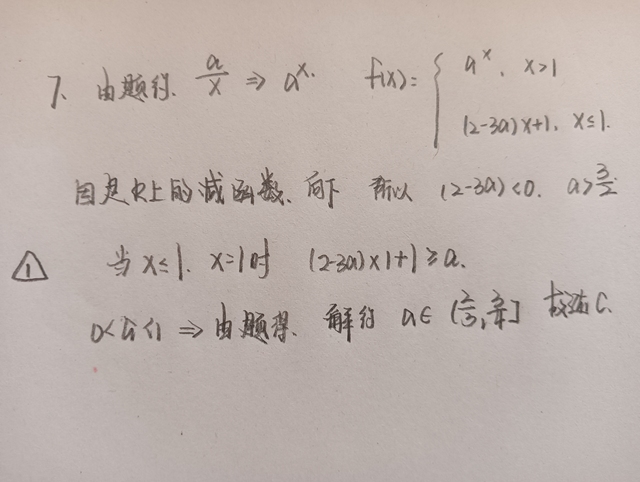 7、由题得. a/x ⇒ aˣ. f(x)= { aˣ, x>1
(2-3a)x+1, x≤1.
因是R上的减函数、向下 所以 (2-3a)<0. a>3/2
① 当x≤1. x=1时 (2-3a)×1+1≥a.
0<a<1 ⇒ 由题得. 解得 a∈(2/3, 3/4] 故选C.